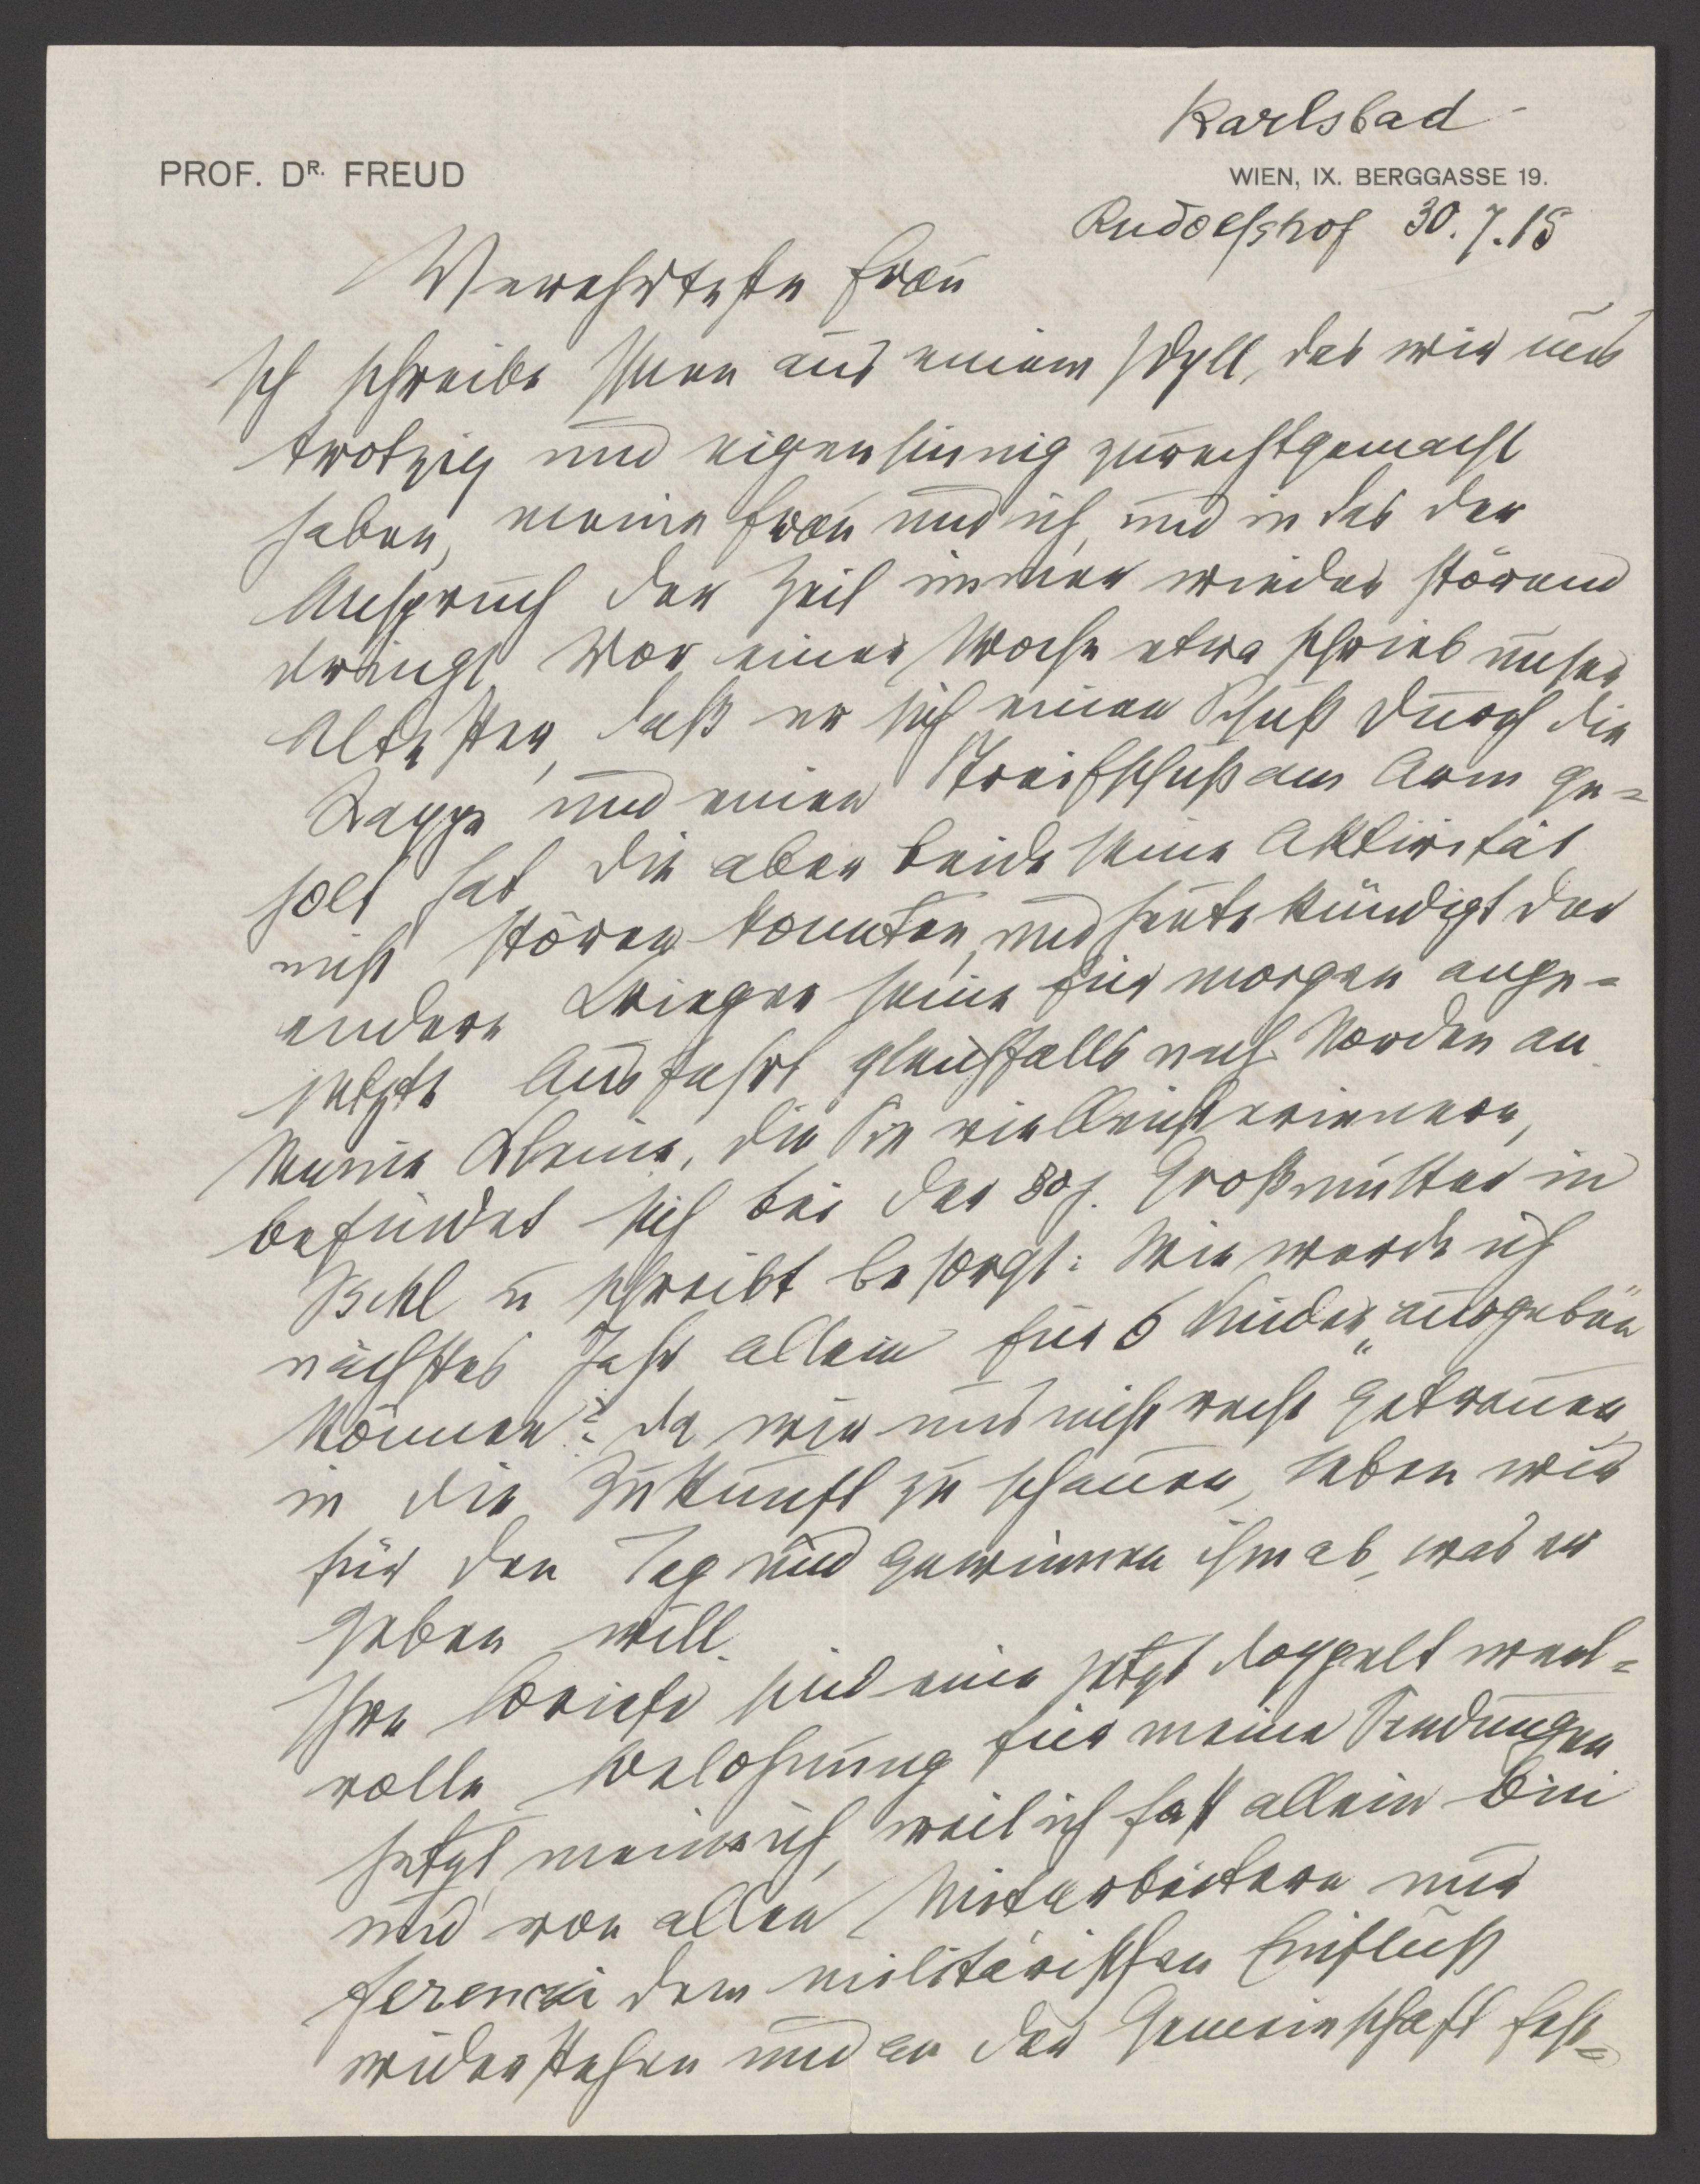 Karlsbad
PROF. DR. FREUD
WIEN, IX. BERGGASSE 19.
Rudolfshof 30.7.15
Verehrteste Frau
Ich schreibe Ihnen aus einem Idyll, das wir uns
trotzig und eigensinnig zurechtgemacht
haben, meine Frau und ich, und in das der
Anspruch der Zeit immer wieder störend
dringt. Vor einer Woche etwa schrieb unser
Ältester, daß er sich einen Schuß durch die
Kappe und einen Streifschuß am Arm ge=
holt hat die aber beide seine Aktivität
nicht stören konnten, und heute kündigt der
andere Krieger seine für morgen ange=
setzte Ausfahrt gleichfalls nach Norden an.
Meine Kleine, die Sie vielleicht erinnern,
befindet sich bei der 80j. Großmutter in
Ischl u schreibt besorgt: Wie werde ich
nächstes Jahr allein für 6 Kinder „ausgeben
können? Da wir uns nicht recht getrauen,
in die Zukunft zu schauen, leben wir
für den Tag und gewinnen ihm ab, was er
geben will.
Ihre Briefe sind eine jetzt doppelt wert=
volle Belohnung für meine Sendungen
jetzt, meine ich, weil ich fast allein bin
und von allen Mitarbeitern nur
Ferenczi dem militärischen Einfluß
widerstehen und an der Gemeinschaft fest=